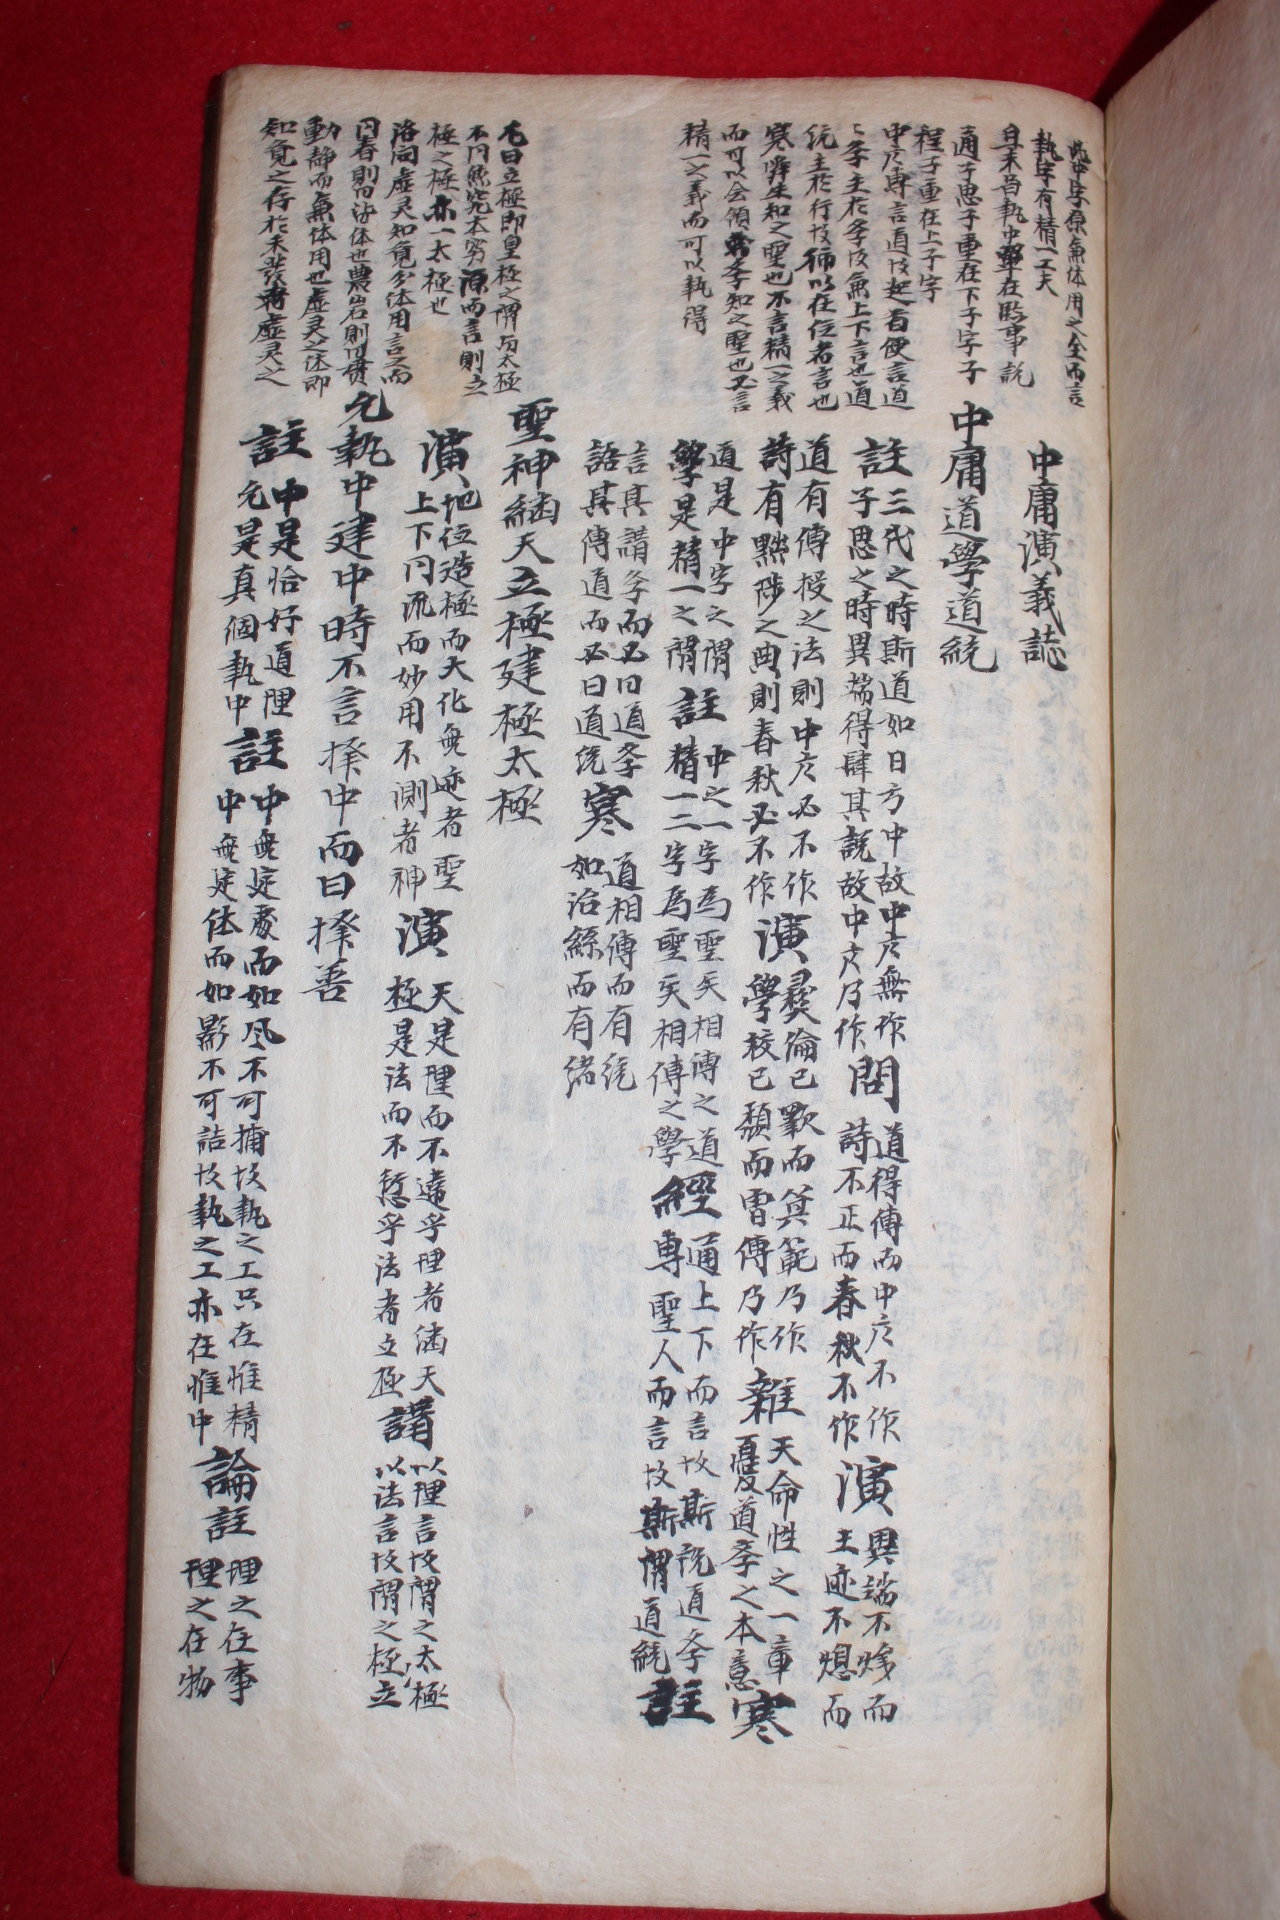 中庸演義誌
中庸道學道統
註
三代之時斯道如日方中故中庸無作
子思之時異端得肆其說故中庸乃作
問
道得傳而中庸不作
詩不正而春秋不作
演
異端不熄而
王迹不熄而
道有傳授之法則中庸必不作
詩有黜陟之典則春秋必不作
演
彛倫已斁而箕範乃作
學校已頹而曾傳乃作
雜
天命性之一章
憂道學之本意
寒
道是中字之謂
學是精一之謂
註
中之一字為聖〻相傳之道
精一二字為聖〻相傳之學
經
通上下而言故斯說道學
專聖人而言故斯謂道統
註
言其講學而必曰道學
語其傳道而必曰道統
寒
道相傳而有統
如治絲而有緒
聖神繼天立極建極太極
演
地位造極而大化無迹者聖
上下同流而妙用不測者神
演
天是理而不違乎理者繼天
極是法而不愆乎法者立極
講
以理言故謂之太極
以法言故謂之立極
允執中建中時不言擇中而曰擇善
註
中是恰好道理
允是真個執中
註
中無定處而如風不可捕故執之工只在惟精
中無定体而如影不可詰故執之工亦在惟中
論註
理之在事
理之在物
此中字原兼体用之全而言
執字有精一工夫
程子重在上子字
通子思子重在下子字子
中庸專言道故起首便言道
統主於行故禰以在位者言也
寒舜生知之聖也不言精一之義
而可以会領 學知之聖也必言
精一之義而可以執得
尤曰立極即皇極之謂與太極
不同然究本窮源而言則立
極之極亦一太極也
洛問虛灵知覚分体用言之而
動静而兼体用也虛灵之体即
知覚之存於未發者虛灵之